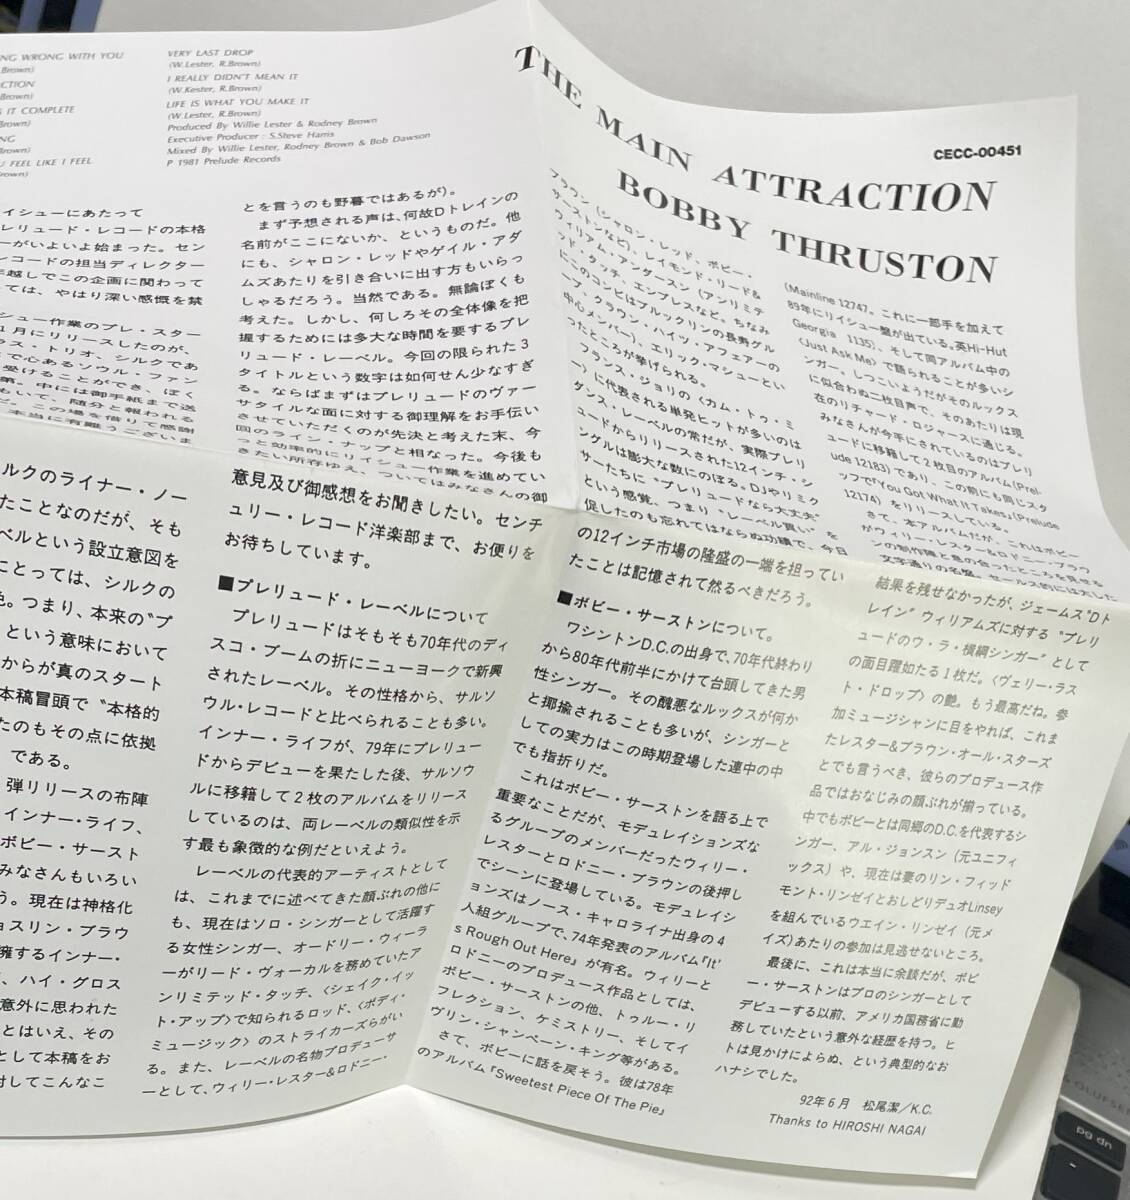 NG WRONG WITH YOU
Brown)
CTION
Brown)
IT COMPLETE
Brown)
NG
Brown)
U FEEL LIKE I FEEL
Brown)
VERY LAST DROP
(W.Lester, R.Brown)
I REALLY DIDN'T MEAN IT
(W.Kester, R.Brown)
LIFE IS WHAT YOU MAKE IT
(W.Lester, R.Brown)
Produced By Willie Lester & Rodney Brown
Executive Producer : S.Steve Harris
Mixed By Willie Lester, Rodney Brown & Bob Dawson
P 1981 Prelude Records
THE MAIN ATTRACTION
BOBBY THRUSTON
CECC-00451
イシューにあたって
レリュード・レコードの本格
ーがいよいよ始まった。セン
レコードの担当ディレクター
年越しでこの企画に関わって
ては、やはり深い感慨を禁
シュー作業のプレ・スター
1月にリリースしたのが、
ラス・トリオ、シルクであ
まで心あるソウル・ファン
受けることができ、ぼく
第。中には御手紙まで送
もいて、随分と報われる
この場を借りて感謝
本当に有難うございま
ルクのライナー・ノー
たことなのだが、そも
ベルという設立意図を
にとっては、シルクの
色。つまり、本来の〝プ
という意味において
からが真のスタート
本稿冒頭で〝本格的
たのもその点に依拠
である。
弾リリースの布陣
インナー・ライフ、
ボビー・サースト
みなさんもいろい
う。現在は神格化
ョスリン・ブラウ
擁するインナー・
、ハイ・グロス
意外に思われた
とはいえ、その
として本稿をお
対してこんなこ
とを言うのも野暮ではあるが)。
まず予想される声は、何故Dトレインの
名前がここにないか、というものだ。他
にも、シャロン・レッドやゲイル・アダ
ムズあたりを引き合いに出す方もいらっ
しゃるだろう。当然である。無論ぼくも
考えた。しかし、何しろその全体像を把
握するためには多大な時間を要するプレ
リュード・レーベル。今回の限られた3
タイトルという数字は如何せん少なすぎ
る。ならばまずはプレリュードのヴァー
サタイルな面に対する御理解をお手伝い
させていただくのが先決と考えた末、今
回のライン・ナップと相なった。今後も
っと効率的にリイシュー作業を進めてい
きたい所存ゆえ、ついてはみなさんの御
意見及び御感想をお聞きしたい。センチ
ュリー・レコード洋楽部まで、お便りを
お待ちしています。
■プレリュード・レーベルについて
プレリュードはそもそも70年代のディ
スコ・ブームの折にニューヨークで新興
されたレーベル。その性格から、サルソ
ウル・レコードと比べられることも多い。
インナー・ライフが、79年にプレリュー
ドからデビューを果たした後、サルソウ
ルに移籍して2枚のアルバムをリリース
しているのは、両レーベルの類似性を示
す最も象徴的な例だといえよう。
レーベルの代表的アーティストとして
は、これまでに述べてきた顔ぶれの他に
も、現在はソロ・シンガーとして活躍す
る女性シンガー、オードリー・ウィーラ
ーがリード・ヴォーカルを務めていたア
ンリミテッド・タッチ、〈シェイク・イッ
ト・アップ〉で知られるロッド、〈ボディ・
ミュージック〉のストライカーズらがい
る。また、レーベルの名物プロデューサ
ーとして、ウィリー・レスター&ロドニー・
ブラウン(シャロン・レッド、ボビー・
サーストンなど)、レイモンド・リード&
ウィリアム・アンダースン(アンリミテ
ッド・タッチ、エンプレスなど。ちなみ
にこのコンビはブルックリンの長寿グル
ープ、クラウン・ハイツ・アフェアーの
中心メンバー)、エリック・マシューとい
ったところが挙げられる。
フランス・ジョリの〈カム・トゥ・ミ
ー〉に代表される単発ヒットが多いのは
ダンス・レーベルの常だが、実際プレリ
ュードからリリースされた12インチ・シ
ングルは膨大な数にのぼる。DJやリミク
サーたちに〝プレリュードなら大丈夫〟
という感覚、つまり〝レーベル買い〟を
促したのも忘れてはならぬ功績で、今日
の12インチ市場の隆盛の一端を担ってい
たことは記憶されて然るべきだろう。
■ボビー・サーストンについて。
ワシントンD.C.の出身で、70年代終わり
から80年代前半にかけて台頭してきた男
性シンガー。その醜悪なルックスが何か
と揶揄されることも多いが、シンガーと
しての実力はこの時期登場した連中の中
でも指折りだ。
これはボビー・サーストンを語る上で
重要なことだが、モデュレイションズな
るグループのメンバーだったウィリー・
レスターとロドニー・ブラウンの後押し
でシーンに登場している。モデュレイシ
ョンズはノース・キャロライナ出身の4
人組グループで、74年発表のアルバム『It'
s Rough Out Here』が有名。ウィリーと
ロドニーのプロデュース作品としては、
ボビー・サーストンの他、トゥルー・リ
フレクション、ケミストリー、そしてイ
ヴリン・シャンペーン・キング等がある。
さて、ボビーに話を戻そう。彼は78年
のアルバム『Sweetest Piece Of The Pie』
(Mainline 12747。これに一部手を加えて
89年にリイシュー盤が出ている。英Hi-Hut
Georgia 1135)、そして同アルバム中の
〈Just Ask Me〉で語られることが多いシ
ンガー。しつこいようだがそのルックス
に似合わぬ二枚目声で、そのあたりは現
在のリチャード・ロジャースに通じる。
みなさんが今手にされているのはプレリ
ュードに移籍して2枚目のアルバム(Prel-
ude 12183)であり、この前にも同じスタ
ッフで『You Got What It Takes』(Prelude
12174)をリリースしている。
さて、本アルバムだが、これはボビー
がウィリー・レスター&ロドニー・ブラウ
ンの制作陣と息の合ったところを見せる
文字通りの名盤。セールス的には大した
結果を残せなかったが、ジェームス〝Dト
レイン〟ウィリアムズに対する〝プレリ
ュードのウ・ラ・横綱シンガー〟として
の面目躍如たる1枚だ。〈ヴェリー・ラス
ト・ドロップ〉の艶。もう最高だね。参
加ミュージシャンに目をやれば、これま
たレスター&ブラウン・オール・スターズ
とでも言うべき、彼らのプロデュース作
品ではおなじみの顔ぶれが揃っている。
中でもボビーとは同郷のD.C.を代表するシ
ンガー、アル・ジョンスン(元ユニフィ
ックス)や、現在は妻のリン・フィッド
モント・リンゼイとおしどりデュオLinsey
を組んでいるウエイン・リンゼイ(元メ
イズ)あたりの参加は見逃せないところ。
最後に、これは本当に余談だが、ボビ
ー・サーストンはプロのシンガーとして
デビューする以前、アメリカ国務省に勤
務していたという意外な経歴を持つ。ヒ
トは見かけによらぬ、という典型的なお
ハナシでした。
92年6月 松尾潔/K.C.
Thanks to HIROSHI NAGAI
OLUFSEN
pg up